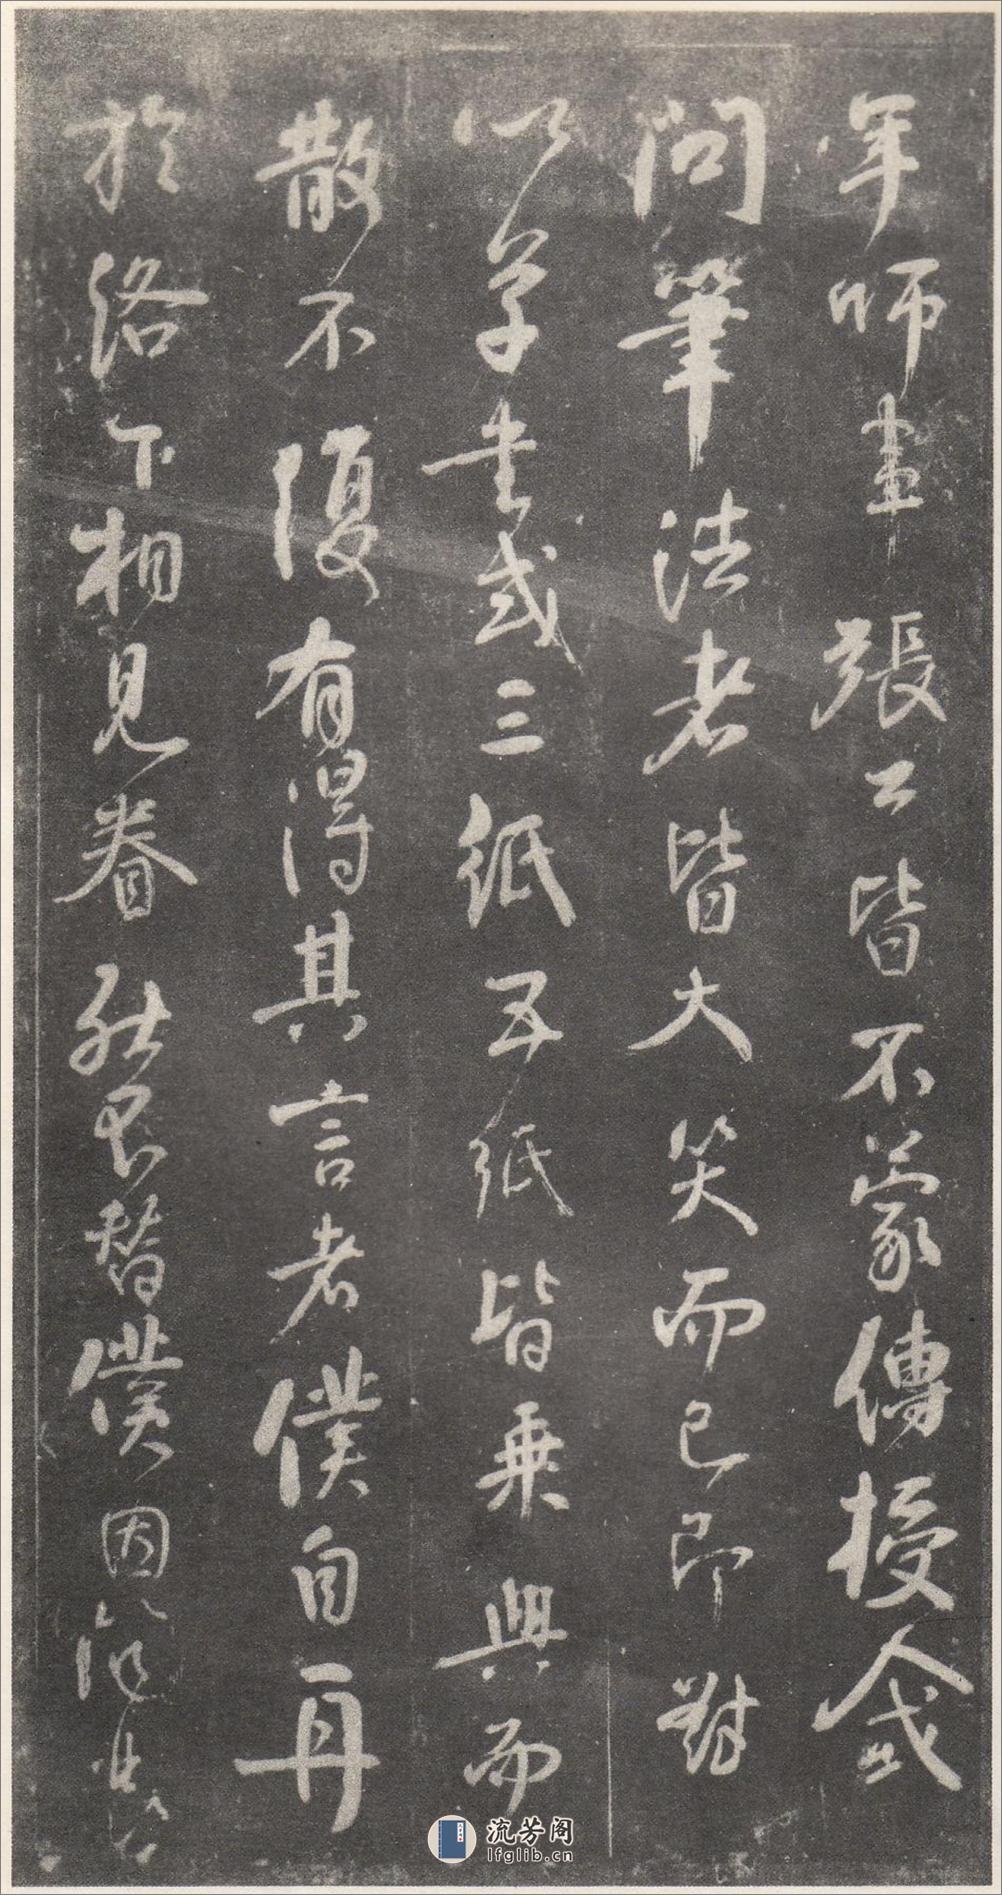 年師盡張公皆不蒙傳授人或
問筆法者皆大笑而已即對
以草書或三紙五紙皆乘興而
散不復有得其言者僕自再
於洛下相見眷然不替僕因
流芳阁
lfglib.cn